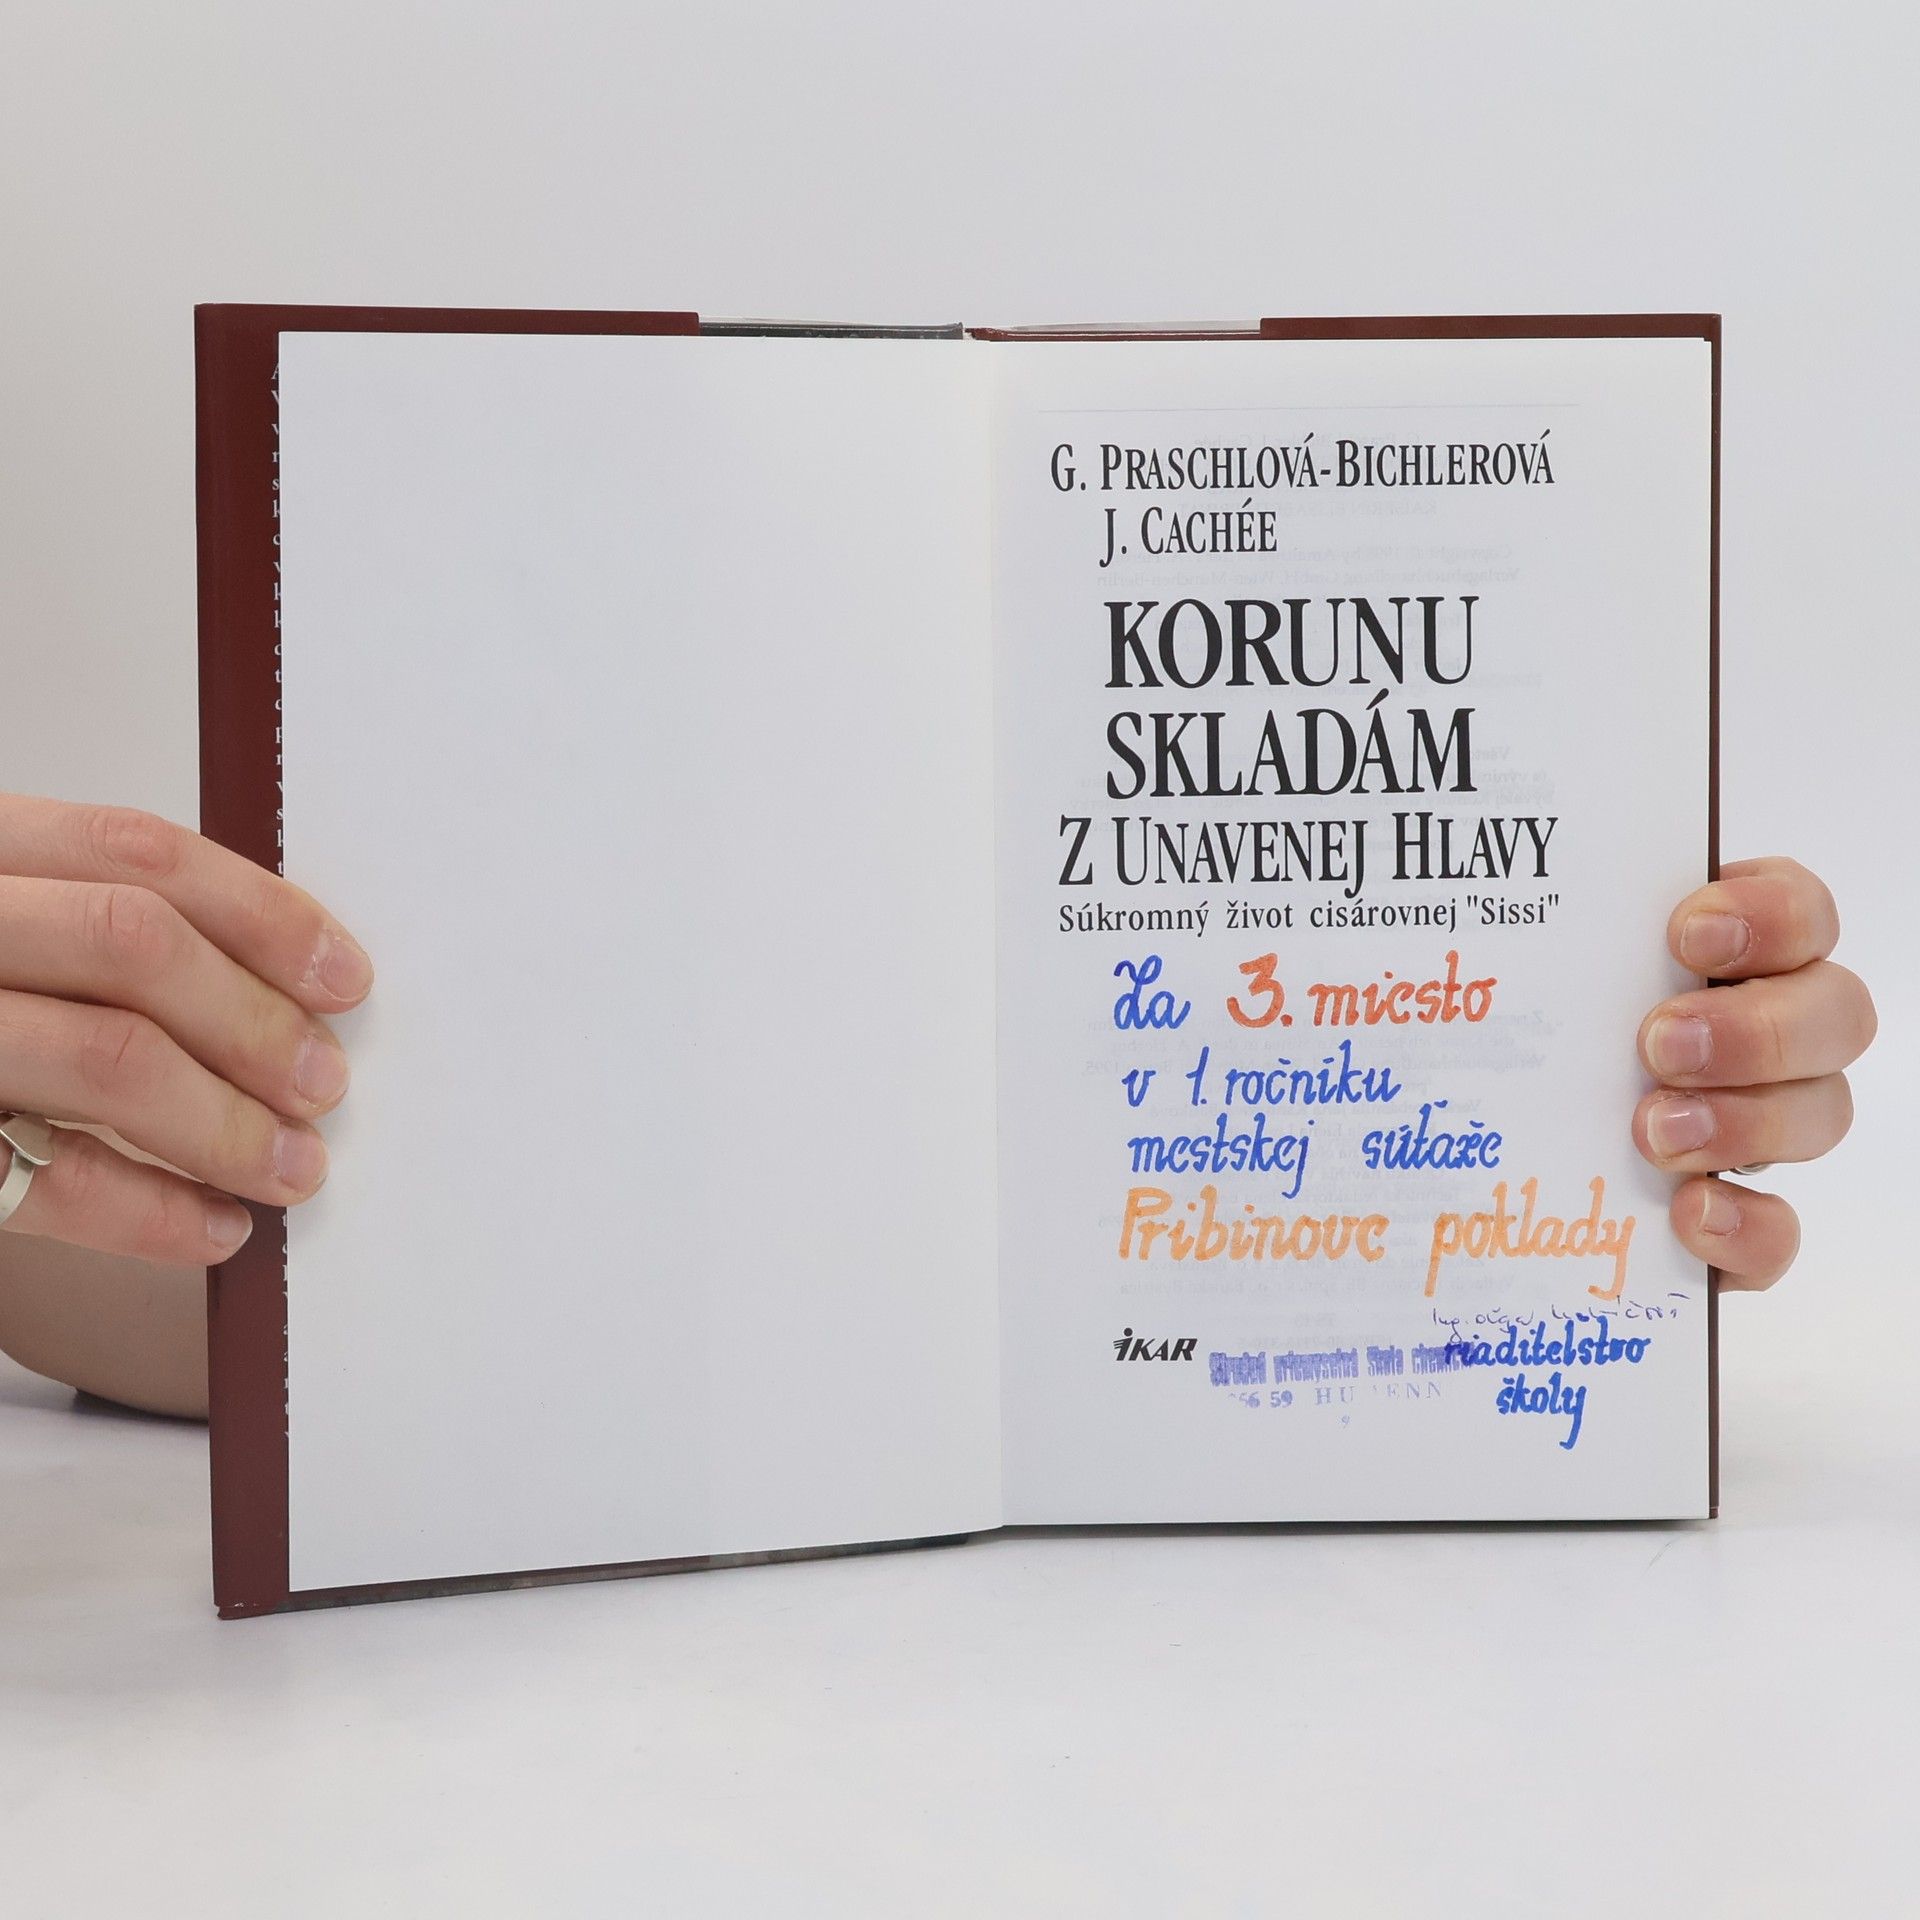 G. PRASCHLOVÁ-BICHLEROVÁ
J. CACHÉE
KORUNU
SKLADÁM
Z UNAVENEJ HLAVY
Súkromný život cisárovnej "Sissi"
Za 3. miesto
v 1. ročníku
mestskej súťaže
Pribinove poklady
Ing. Oľga
IKAR
riaditeľstvo
školy
škola
56 59 HU ENN